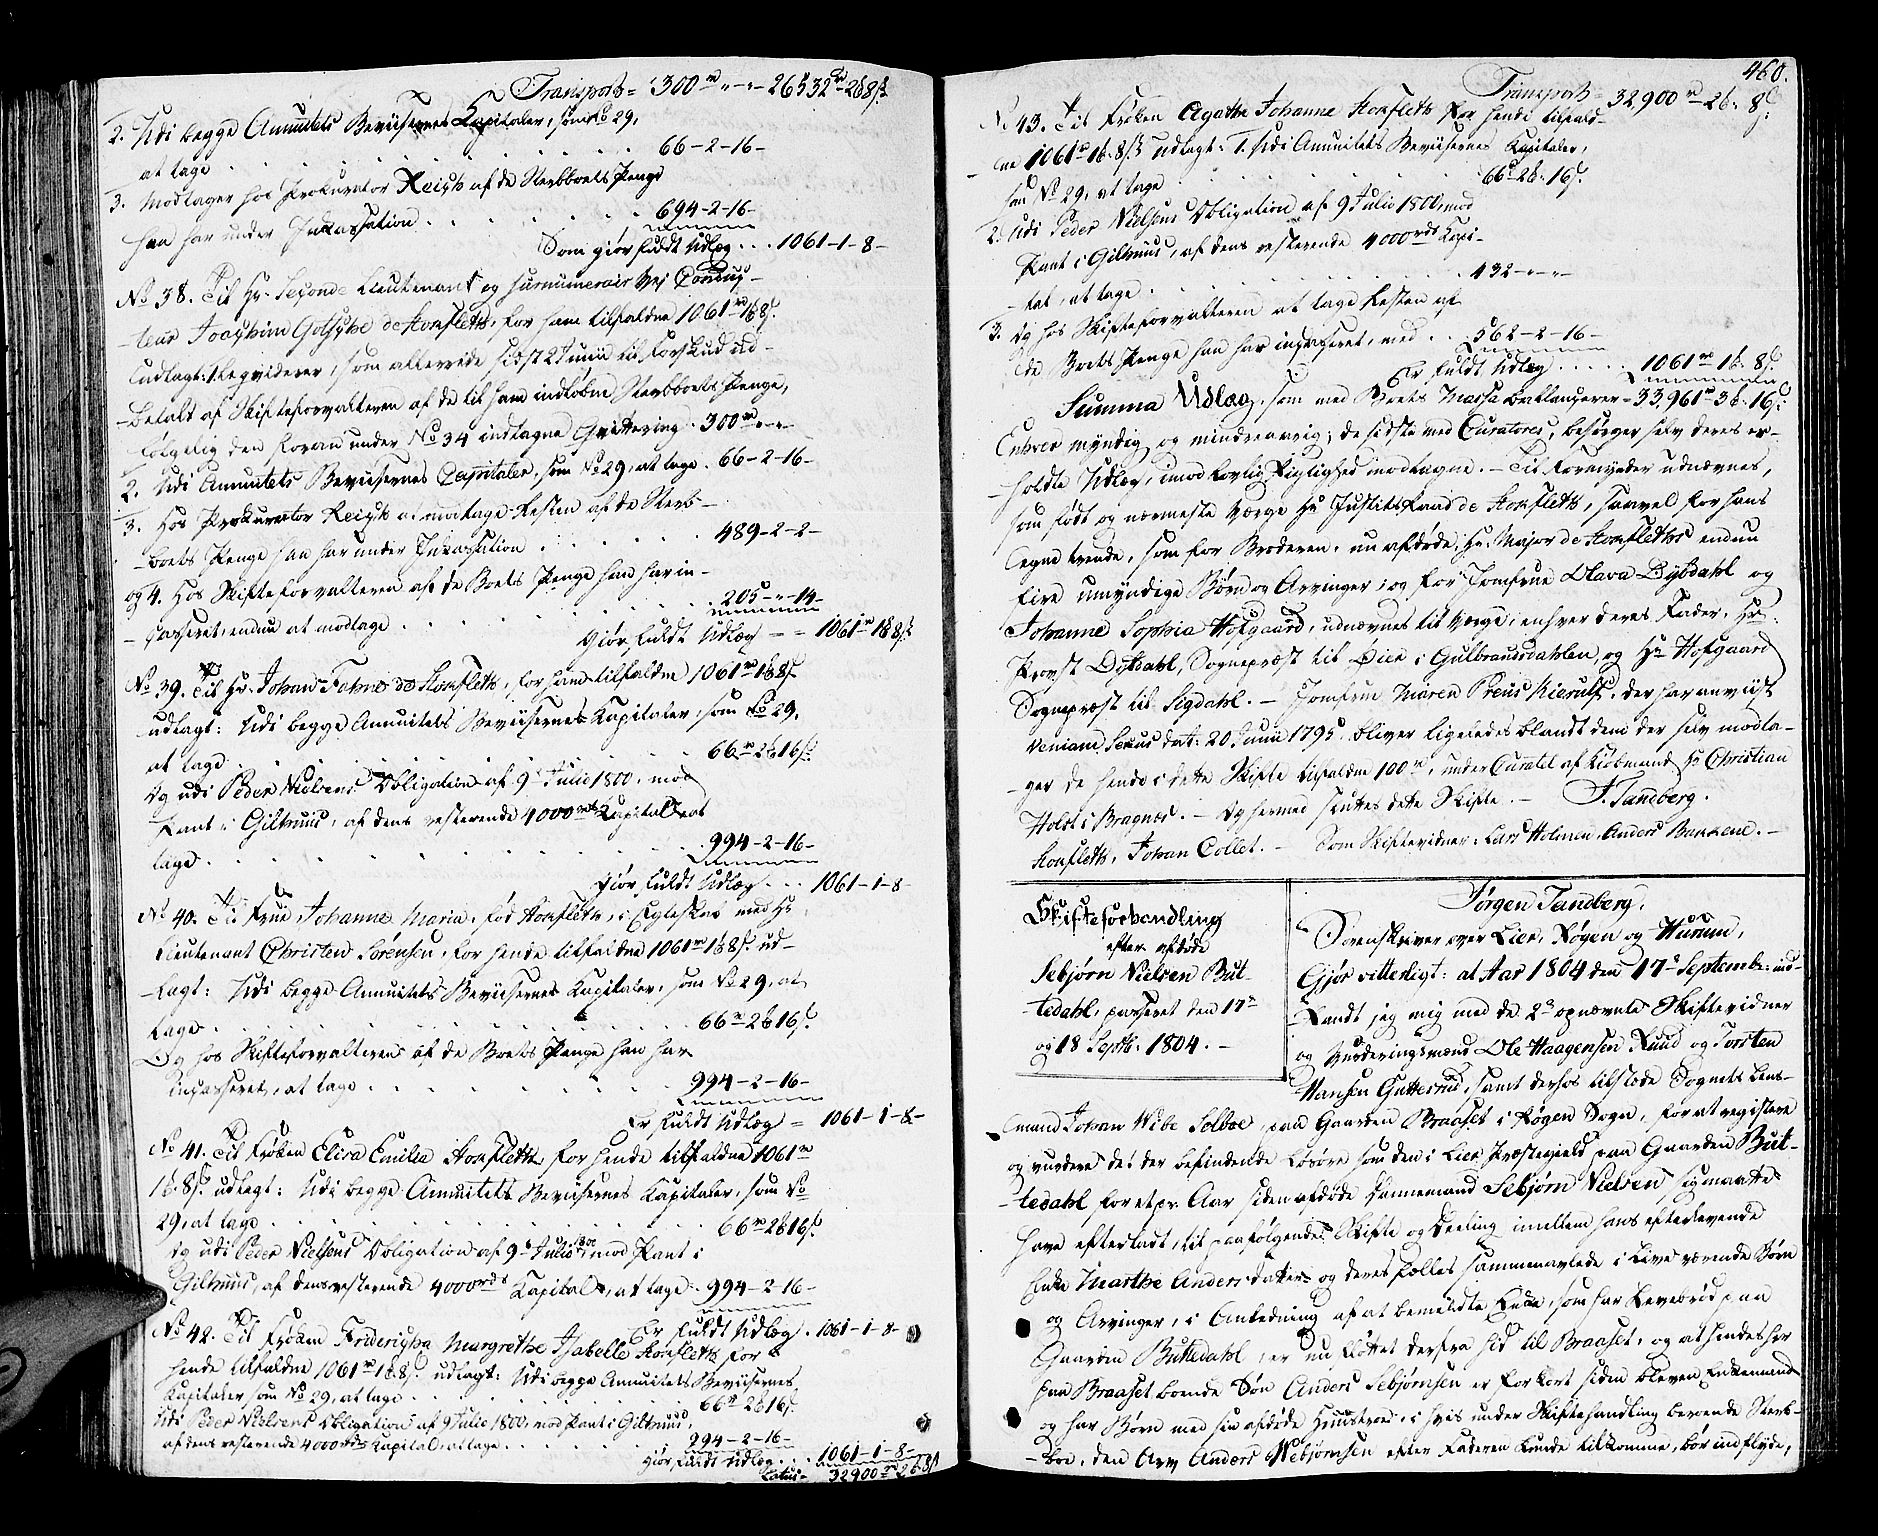 Transport = 300 rd " - " - 26532 rd 2 ß 8 s
2. Udi begge Annuitets Beviisernes Kapitaler, som No 29,
at tage . . . . . . . . 66-2-16-
3. Modtager hos Prokurator Reich af de Sterboets Penge
han har under Inkassation . . . . . . 694-2-16-
Som giør fuldt Udlæg . . . 1061-1-8-
No 38. Til Hr. Seconde Lieutenant og surnumerair Vej Conduc-
-teur Joachim Gotsche de Hoxfleth, for ham tilfaldne 1061 rd 1 ß 8 s.
udlagt: 1. Liqviderer, som allerede sidst 2 Junii til Forskud ud-
-betalt af Skifteforvalteren af de til ham indkobne Sterboets Penge,
følgelig den foran under No 34 indtagne Qvittering . 300 rd " - " -
2. Udi Annuitets Beviisernes Capitaler, som No 29, at tage . 66-2-16-
3. Hos Prokurator Reich at modtage Resten af de Sterb-
-boets Penge han har under Inkassation . . . . . . 489-2-2-
og 4. Hos Skifteforvalteren af de Boets Penge han har in-
-casseret, endnu at modtage . . . . . . . . 205-"-14-
Giør fuldt Udlæg - - 1061 rd 1 ß 8 s
No 39. Til Hr. Johan Fohne de Hoxfleth, for ham tilfaldne 1061 rd 1 ß 8 s
udlagt: Udi begge Annuitets Beviisernes Kapitaler, som No 29,
at tage . . . . . . . . 66 rd 2 ß 16 s
Og udi Peder Nielsens Obligation af 9 Julio 1800, mod
Pant i Gilhuus, af dens resterende 4000 rds Kapital at
tage . . . . . . . . . 994-2-16-
Giør fuldt Udlæg . . . 1061-1-8-
No 40. Til Frue Johanne Maria, fød Hoxfleth, i Egteskab med Hr
Lieutenant Christen Sørensen, for hende tilfaldne 1061 rd 1 ß 8 s. ud-
-lagt: Udi begge Annuitets Beviisernes Kapitaler, som No 29, at
tage . . . . . . . . 66 rd 2 ß 16 s.
Og hos Skifteforvalteren af de Boets Penge han har
incasseret, at tage . . . . . . . 994-2-16-
Er fuldt Udlæg = 1061-1-8-
No 41. Til Frøken Elisa Emilia Hoxfleth for hende tilfaldne 1061 rd
1 ß. 8 s. udlagt: Udi begge Annuitets Beviisernes Kapitaler, som No
29, at tage . . . . . . . . 66 rd 2 ß 16 s.
Og udi Peder Nielsens Obligation af 9 Julio 1800 mod Pant i
Gilhuus, af dens resterende 4000 rds Kapital, at tage . 994-2-16-
Er fuldt Udlæg . 1061-1-8-
No 42. Til Frøken Friderichha Margrethe Isabelle Hoxfleth for
hende tilfaldne 1061 rd 1 ß 8 s. udlagt: Udi begge Annuitets Beviisernes
Kapitaler som No 29, at tage . . . . . . . 66 rd 2 ß 16 s.
Udi Peder Nielsens Obligation af 9 Julio 1800, mod Pant i Gilhuus,
af dens resterende 4000 rds Kapital, at tage . . . . . . 994-2-16-
Giør fuldt Udlæg . . . 1061-1-8-
Latus = 32900 rd 2 ß 8 s
460.
Transport = 32,900 rd - 2 ß. 8 s.
No 43. Til Frøken Agathe Johanne Hoxfleth for hende tilfald-
-ne 1061 rd 1 ß. 8 s udlagt: 1. Udi Annuitets Beviisernes Kapitaler,
som No 29, at tage . . . . . . . 66 rd 2 ß. 16 s.
2. Udi Peder Nielsens Obligation af 9 Julio 1800, mod
Pant i Gilhuus, af dens resterende 4000 rds Kapi-
-tal, at tage . . . . . . . . 432-"-"-
3. Og hos Skifteforvalteren at tage Resten af
de Boets Penge han har incasseret, med . . 562-2-16-
Er fuldt Udlæg . . . . . 1061 rd 1 ß. 8 s.
Summa Udlæg, som med Boets Massa ballancerer = 33,961 rd 3 ß. 16 s.
Enhver myndig og mindreaarig; de sidste med Curatores, besørger selv deres er-
-holdte Udlæg, imod lovlig Rigtighed modtagne. - Til Formynder udnævnes,
som født og nærmeste Værge Hr Justitsraad de Hoxfleth, saavel for hans
egne trende, som for Broderen, nu afdøde, Hr. Major de Hoxfleths endnu
fire umyndige Børn og Arvinger; og for Jomfrue Olava Dybdahl og
Johanne Sophia Hofgaard, udnævnes til Værge, enhver deres Fader, Hr.
Provst Dybdahl, Sognepræst til Øier i Gulbrandsdahlen, og Hr Hofgaard
Sognepræst til Sigdahl. - Jomfrue Maren Preus Kierulf, der har anviist
Veniam Sexus dat: 20 Junii 1795 bliver ligeledes blandt dem der selv modta-
-ger de hende i dette Skifte tilfaldne 100 rd, under Curatel af Kiøbmand Hr Christian
Holst i Bragnes. - Og hermed sluttes dette Skifte. - J. Tandberg.
Hoxfleth. Johan Collet. - Som Skiftevidner: Lars Holmen. Anders Bakkene. -
Skifteforhandling
efter afdøde
Sebjørn Nielsen But-
tedahl, passeret den 17de
og 18 Septb: 1804. -
Jørgen Tandberg,
Sorenskriver over Lier, Røgen og Hurum,
Gjør vitterligt: at Aar 1804 den 17de Septembr: ind-
-fandt jeg mig med de 2de opnævnte Skiftevidner
og Vurderingsmænd Ole Haagensen Ruud og Torsten
Hansen Gutterud, samt derhos tilstede Sognets Lens-
mand Johan Wibe Solboe, paa Gaarden Braaset i Røgen Sogn, for at registere
og vurdere de: der befindende Løsøre som den i Lier Præstegield paa Gaarden But-
-tedahl, for et pr. Aar siden afdøde Dannemand Sebjørn Nielsen, sig maatte
have efterladt, til paafølgende Skifte og Deeling imellem hans efterlevende
Enke Marthe Anders datter og deres fælles sammenavlede i Live værende Børn
og Arvinger, i Anledning af at bemeldte Enke, som har Levebrød paa
Gaarden Buttedahl, er nu fløttet derfra hid til Braaset, og at hendes her
paa Braaset boende Søn Anders Sebjørnsen er for kort siden bleven Enkemand
og har Børn med sin afdøde Huustroe, i hvis under Skiftehandling beroende Sterb-
-boe, den Arv Anders Sebjørnsen efter Faderen kunde tilkomme, bør indflyde,